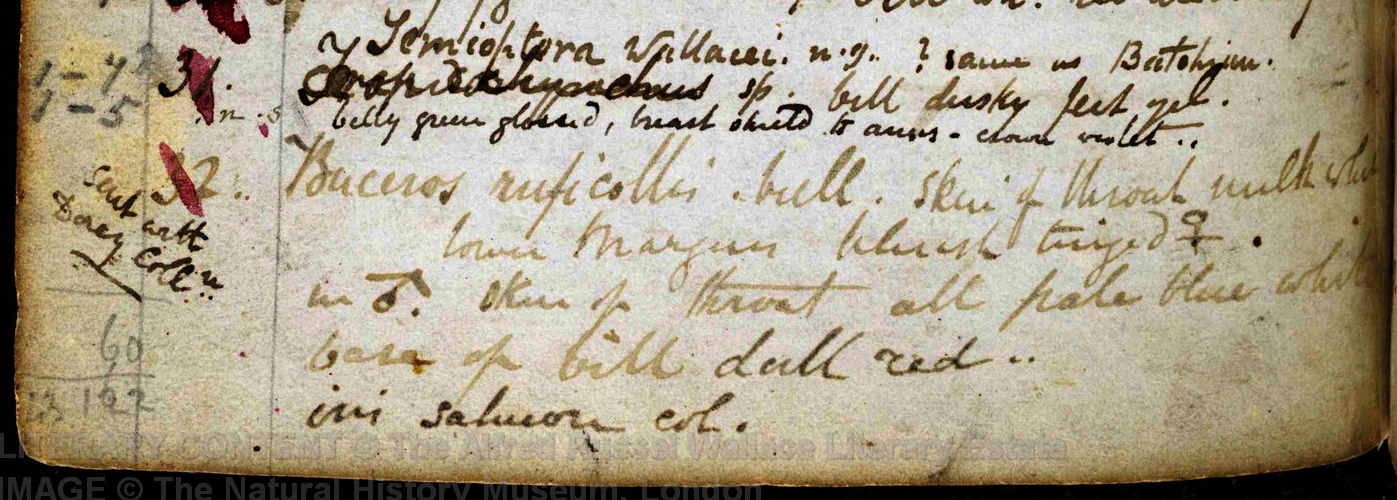 Semioptera Wallacei. n.g. ? same as Batchian.
1 – 7
31. sp. bill dusky feet yel.
1 – 5
n. s belly green glossed, breast shield to anus - crown violet..
32. Buceros ruficollis. bill. skin of throat milk white
sent with
Dorey Colln
lower margins bluish tinged ♀.
in ♂. skin of throat all pale blue white
base of bill dull red..
60
122
iris salmon col.
LITERARY CONTENT © The Alfred Russel Wallace Literary Estate
IMAGE © The Natural History Museum, London